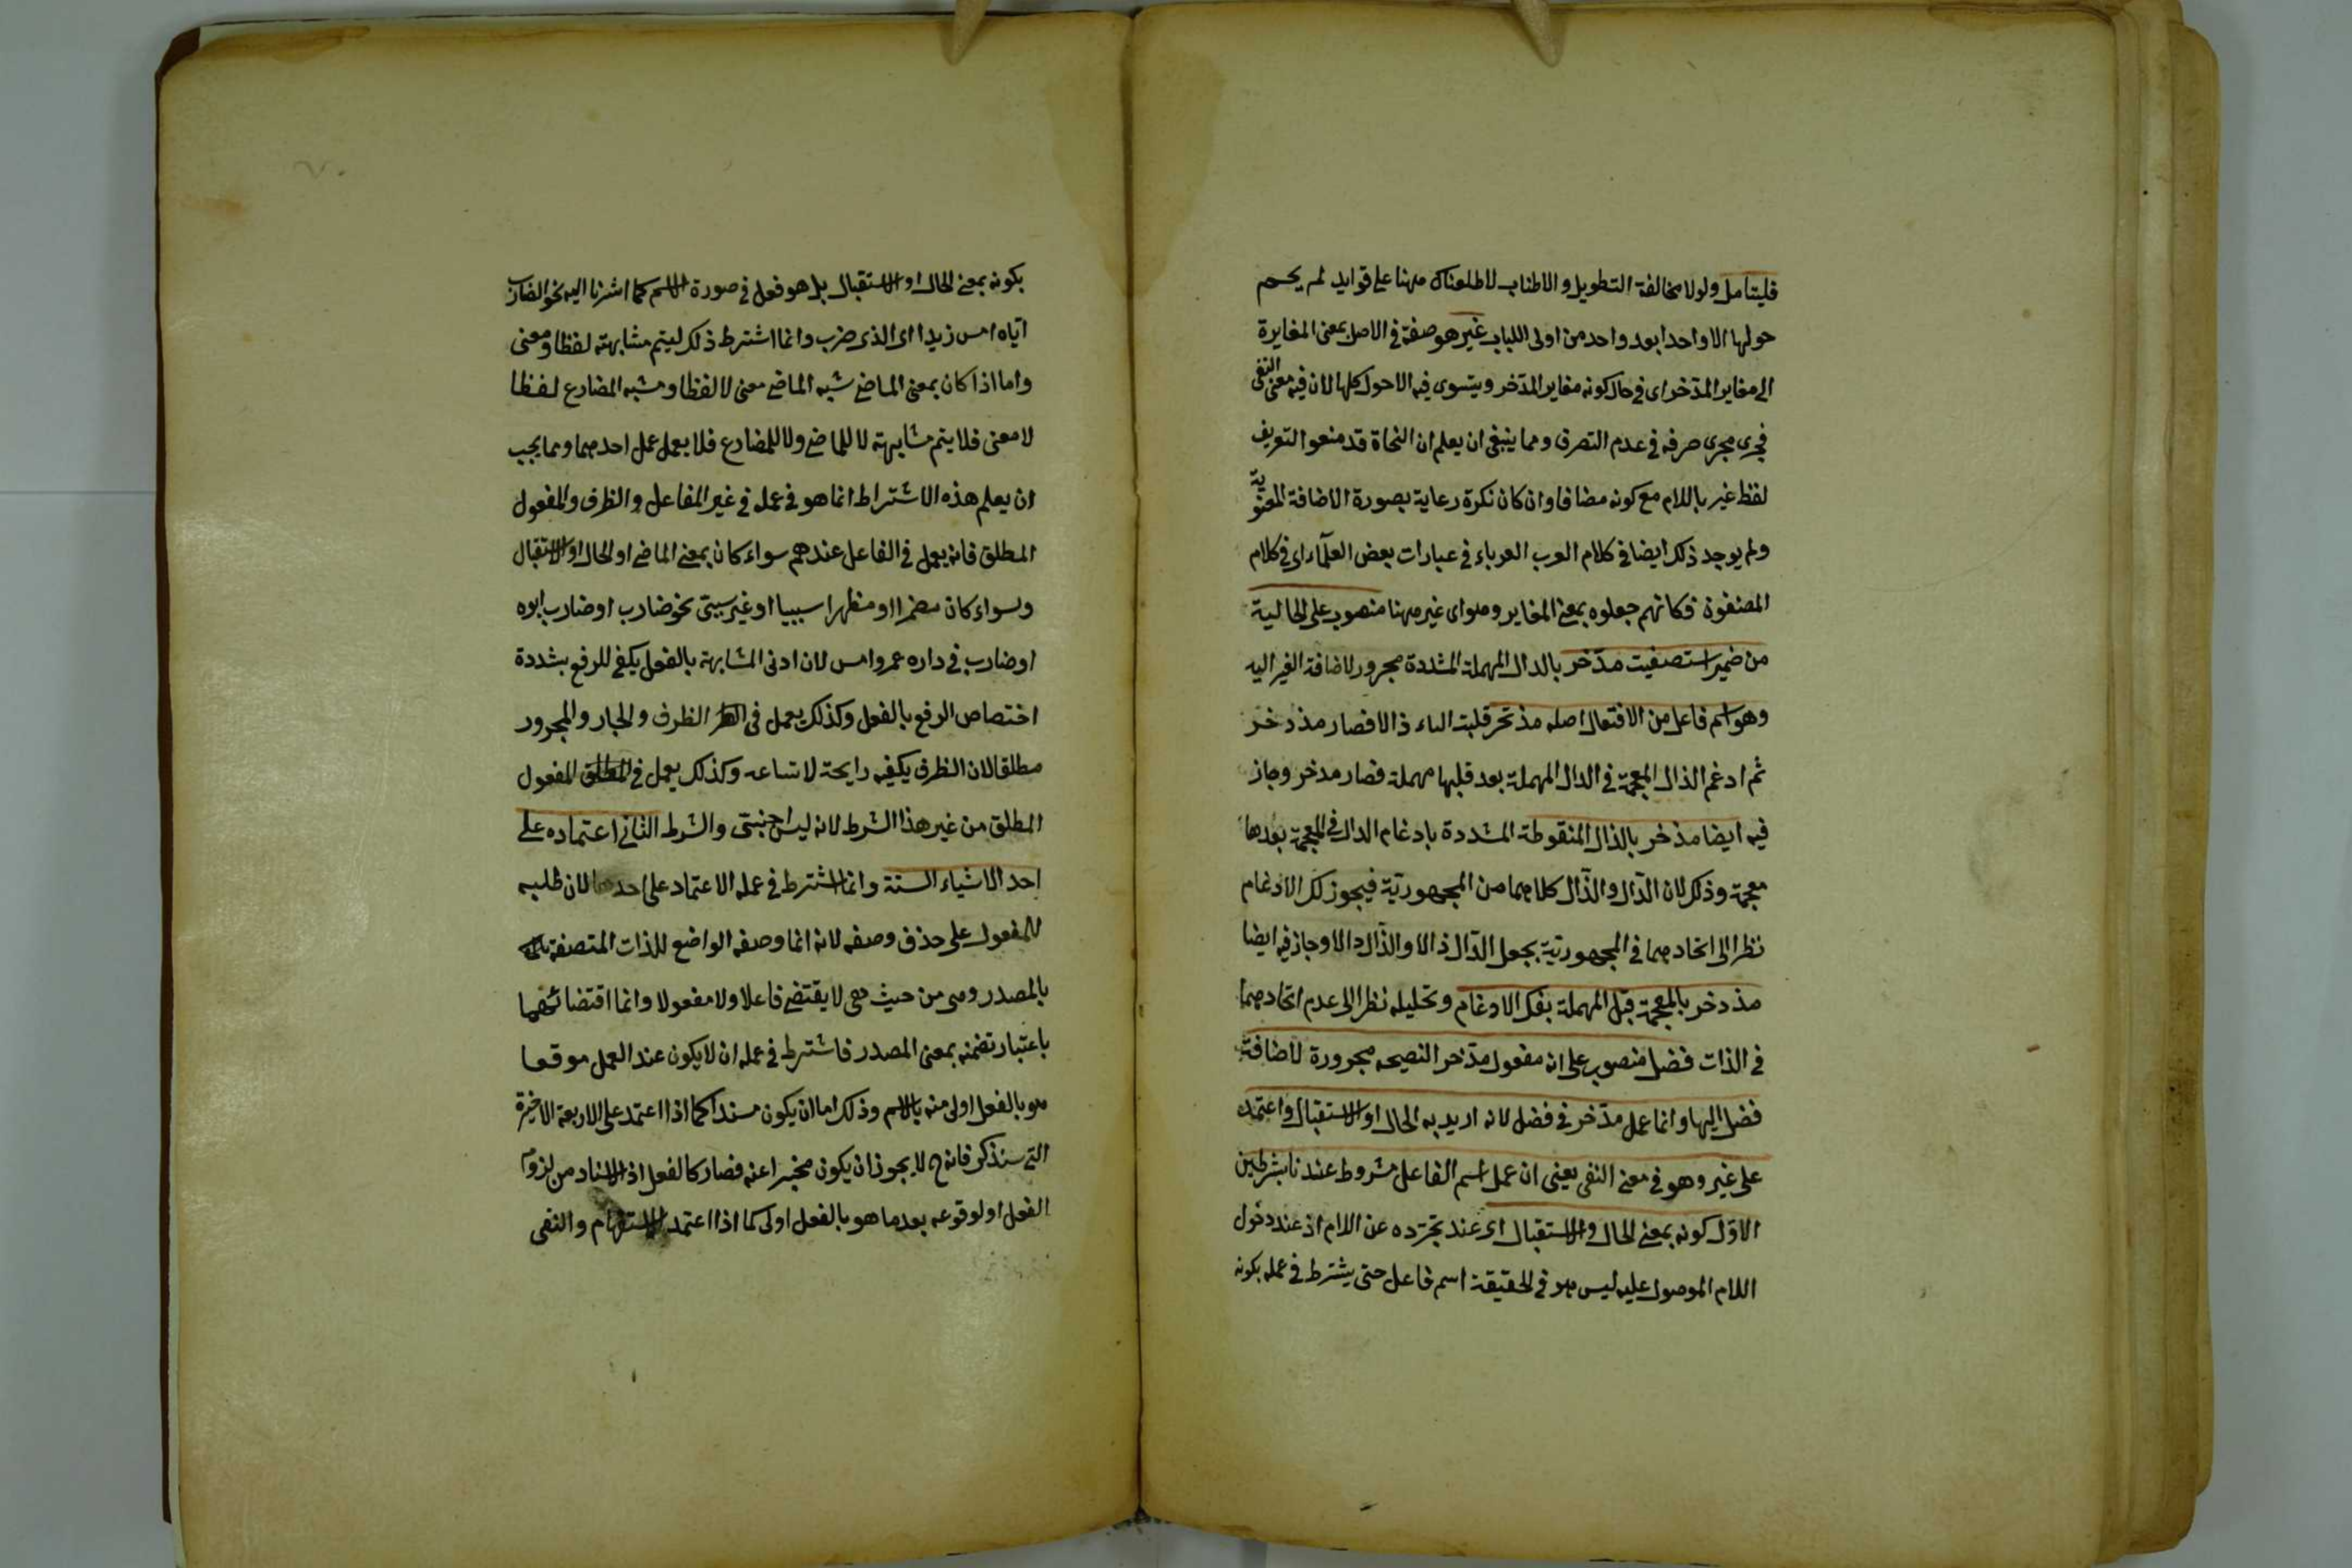 فليتأمل ولولا مخالفة التطويل والاطناب لاطلعناك ههنا على فوايد لم يحم
حولها الا واحدا بعد واحد من اولى اللباب غير هو صفة في الاصل بمعنى المغايرة
الى مغاير المدّخر اى في حال كونه مغاير المدّخر ويتسوى فيه الاحول كلها لان فيه معنى النفى
فجرى مجرى حرفه في عدم التصرف ومما ينبغى ان يعلم ان النحاة قد منعوا التعريف
لفظ غير باللام مع كونه مضافا وان كان نكرة رعاية بصورة الاضافة المعنوية
ولم يوجد ذلك ايضا في كلام العرب العرباء في عبارات بعض العلمآء اى في كلام
المصنفون فكانهم جعلوه بمعنى المغاير وهو اى غير ههنا منصوب على الحالية
من ضمير استصفيت مدّخر بالدال المهملة المشددة مجرور لاضافة الغير اليه
وهو اسم فاعل من الافتعال اصله مذتخر قلبت التاء ذالا فصار مذدخر
ثم ادغم الذال المعجمة في الدال المهملة بعد قلبها مهملة فصار مدخر وجاز
فيه ايضا مذخر بالذال المنقوطة المشددة بادغام الدال في المعجمة بعدها
معجمة وذلك لان الدّال والذّال كلاهما من المجهوريّة فيجوز لك الادغام
نظرا الى اتحادهما في المجهوريّة بجعل الدّال ذالا والذّال دالا وجاز فيه ايضا
مذدخر بالمعجمة قبل المهملة بفك الادغام وتحليله نظرا الى عدم اتحادهما
في الذات فضل منصوب على انه مفعول مدّخر النصيحه مجرورة لاضافة
فضل اليها وانما عمل مدّخر في فضل لانه اريد به الحال او الاستقبال واعتمد
على غير وهو في معنى النفى يعنى ان عمل اسم الفاعل مشروط عندنا بشرطين
الاوّل كونه بمعنى الحال والاستقبال اى عند تجرّده عن اللام اذ عند دخول
اللام الموصول عليه ليس هو في الحقيقة اسم فاعل حتى يشترط في عمله بكونه
بكونه بمعنى الحال او الاستقبال بل هو فعل في صورة الاسم كما اشرنا اليه نحو الضارب
اباه امس زيدا اى الذى ضرب وانما اشترط ذلك ليتم مشابهته لفظا ومعنى
واما اذا كان بمعنى الماضى شبه الماضى معنى لا لفظا ومشبه المضارع لفظا
لا معنى فلا يتم مشابهته لا للماضى ولا للمضارع فلا يعمل عمل احدهما ومما يجب
ان يعلم هذه الاشتراط انما هو في عمله في غير المفاعل والظرف والمفعول
المطلق فانه يعمل في الفاعل عندهم سواء كان بمعنى الماضى او الحال او الاستقبال
وسواء كان مضمرا او مظهرا سببيا او غير سببى نحو ضارب او ضارب ابوه
او ضارب في داره عمرو امس لان ادنى المشابهة بالفعل يكفى للرفع بشددة
اختصاص الرفع بالفعل وكذلك يعمل في الظرف والجار والمجرور
مطلقا لان الظرف يكفيه رايحة لاتساعه وكذلك يعمل في المفعول
المطلق من غير هذا الشرط لانه ليس اجنبىّ والشرط الثانى اعتماده على
احد الاشياء الستة وانما اشترط في عمله الاعتماد على احدها لان طلبه
للمفعول على حذف وصفه لانه انما وصفه الواضع للذات المتصفة
بالمصدر وهى من حيث هى لا يقتضى فاعلا ولا مفعولا وانما اقتضائهما
باعتبار تضمنه بمعنى المصدر فاشترط في عمله ان لا يكون عند العمل موقعا
هو بالفعل اولى منه بالاسم وذلك اما ان يكون مسندا كما اذا اعتمد على الاربعة الاخيرة
التى سنذكر فانه ح لا يجوز ان يكون مخبرا عنه فصار كالفعل اذ الاسناد من لزوم
الفعل او لوقوعه بعد ما هو بالفعل اولى كما اذا اعتمد الاستفهام والنفى